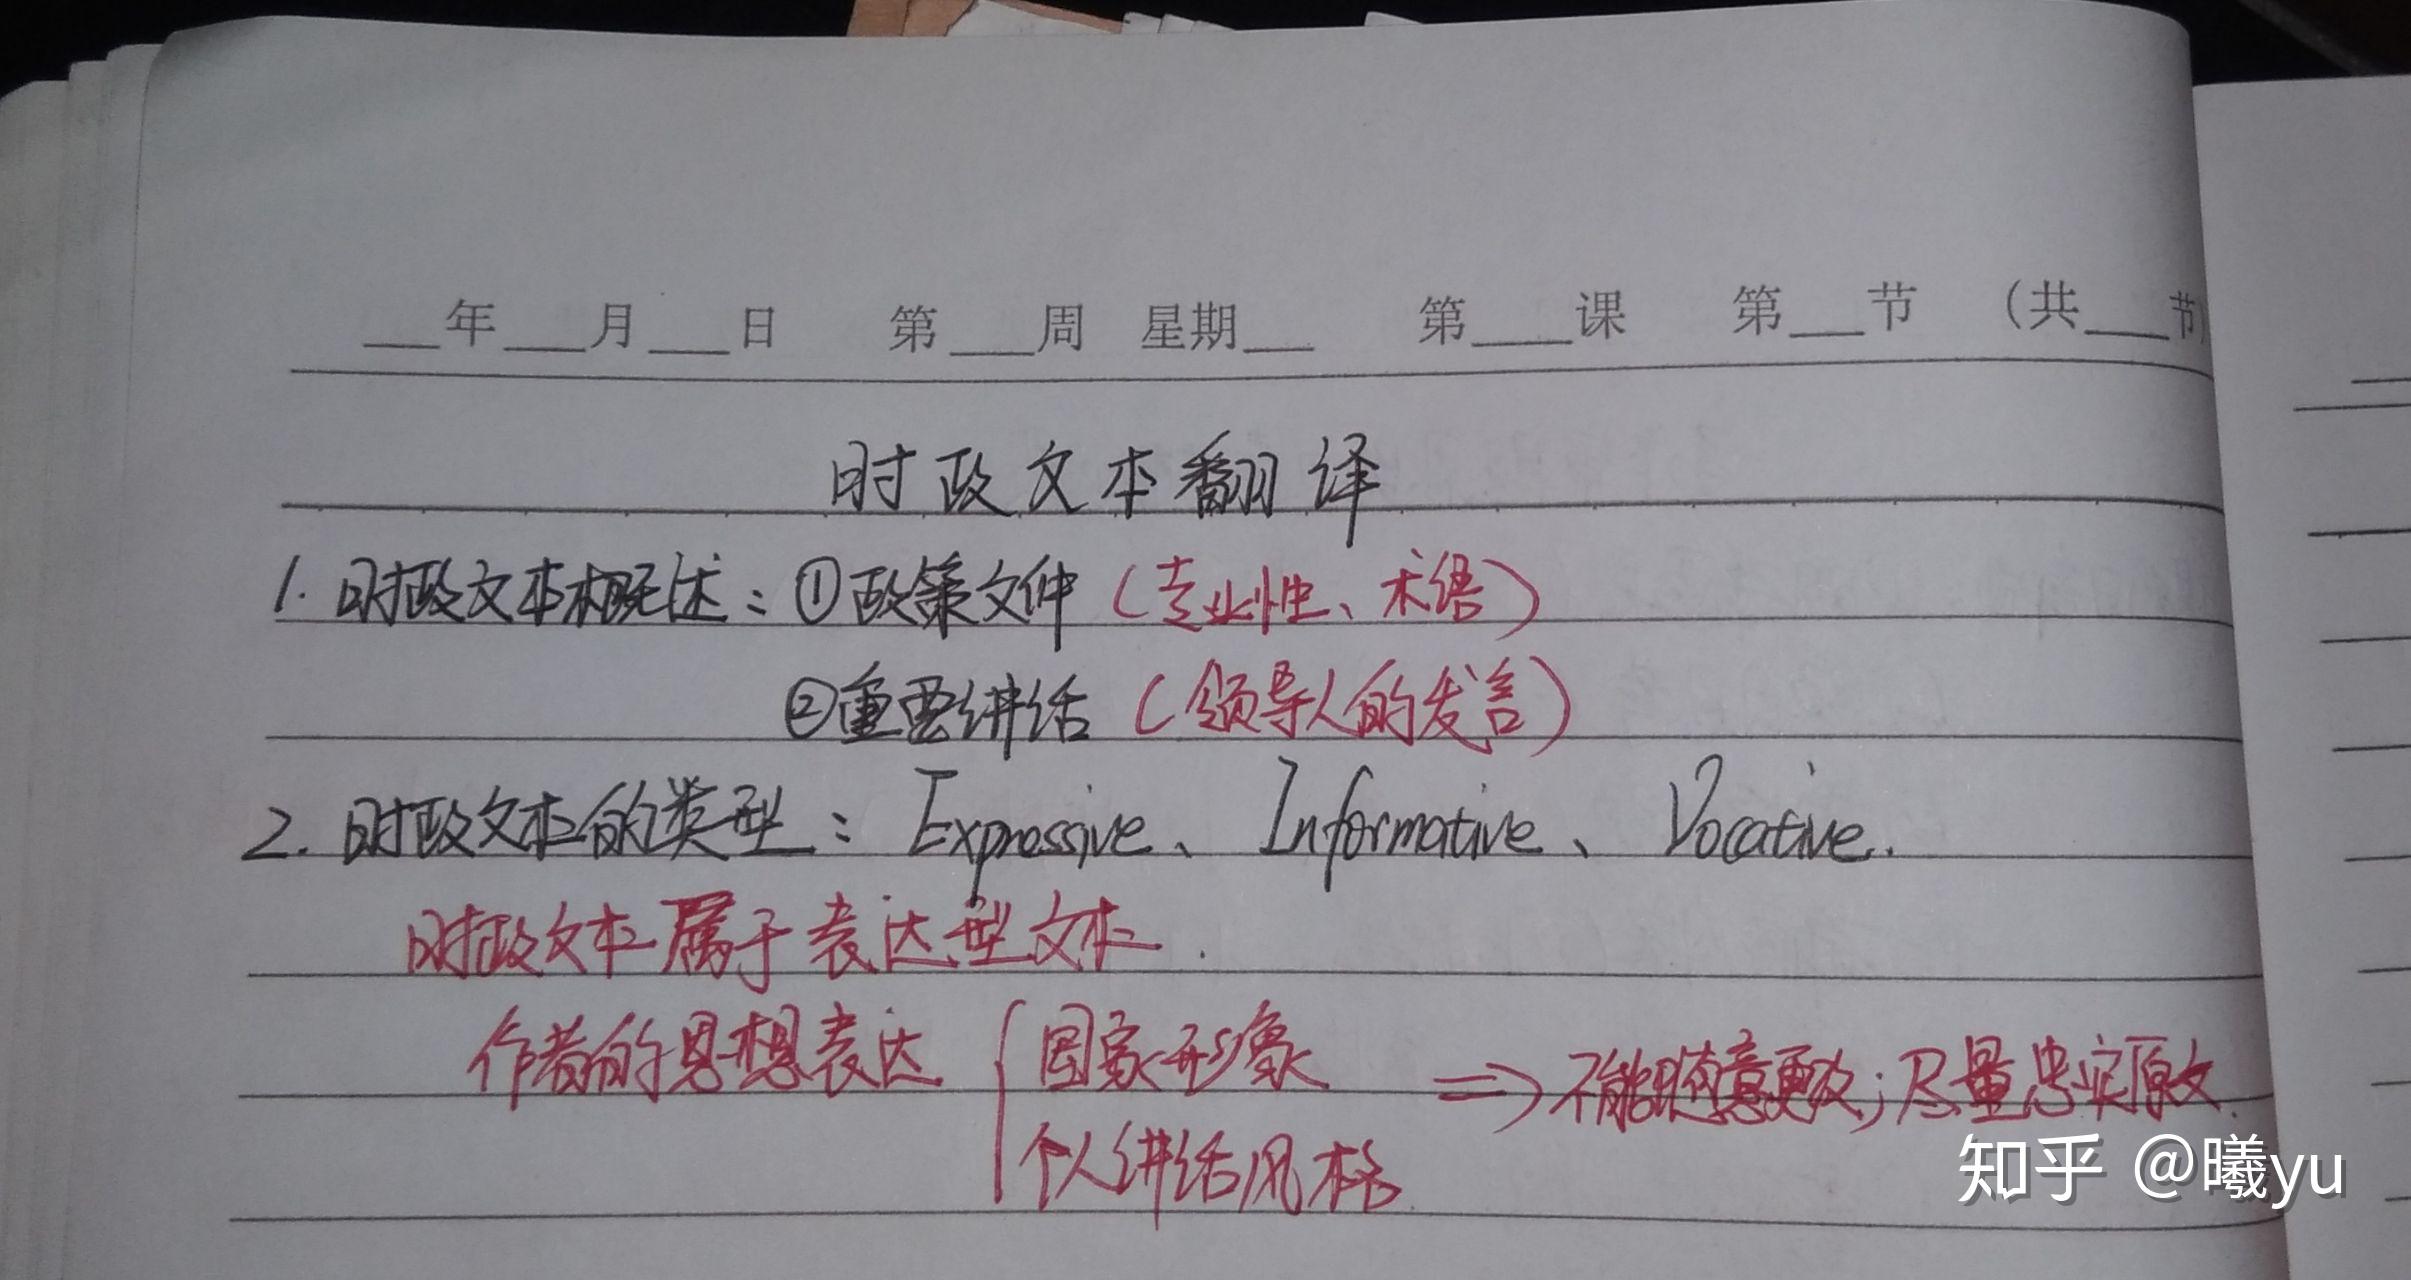 ___年___月___日 第___周 星期___ 第___课 第___节 （共___节）
时政文本翻译
1. 时政文本概述：①政策文件（专业性、术语）
②重要讲话（领导人的发言）
2. 时政文本的类型：Expressive、Informative、Vocative.
时政文本属于表达型文本.
作者的思想表达 { 国家形象 => 不能随意更改；尽量忠实原文.
个人讲话风格.
知乎 @曦yu